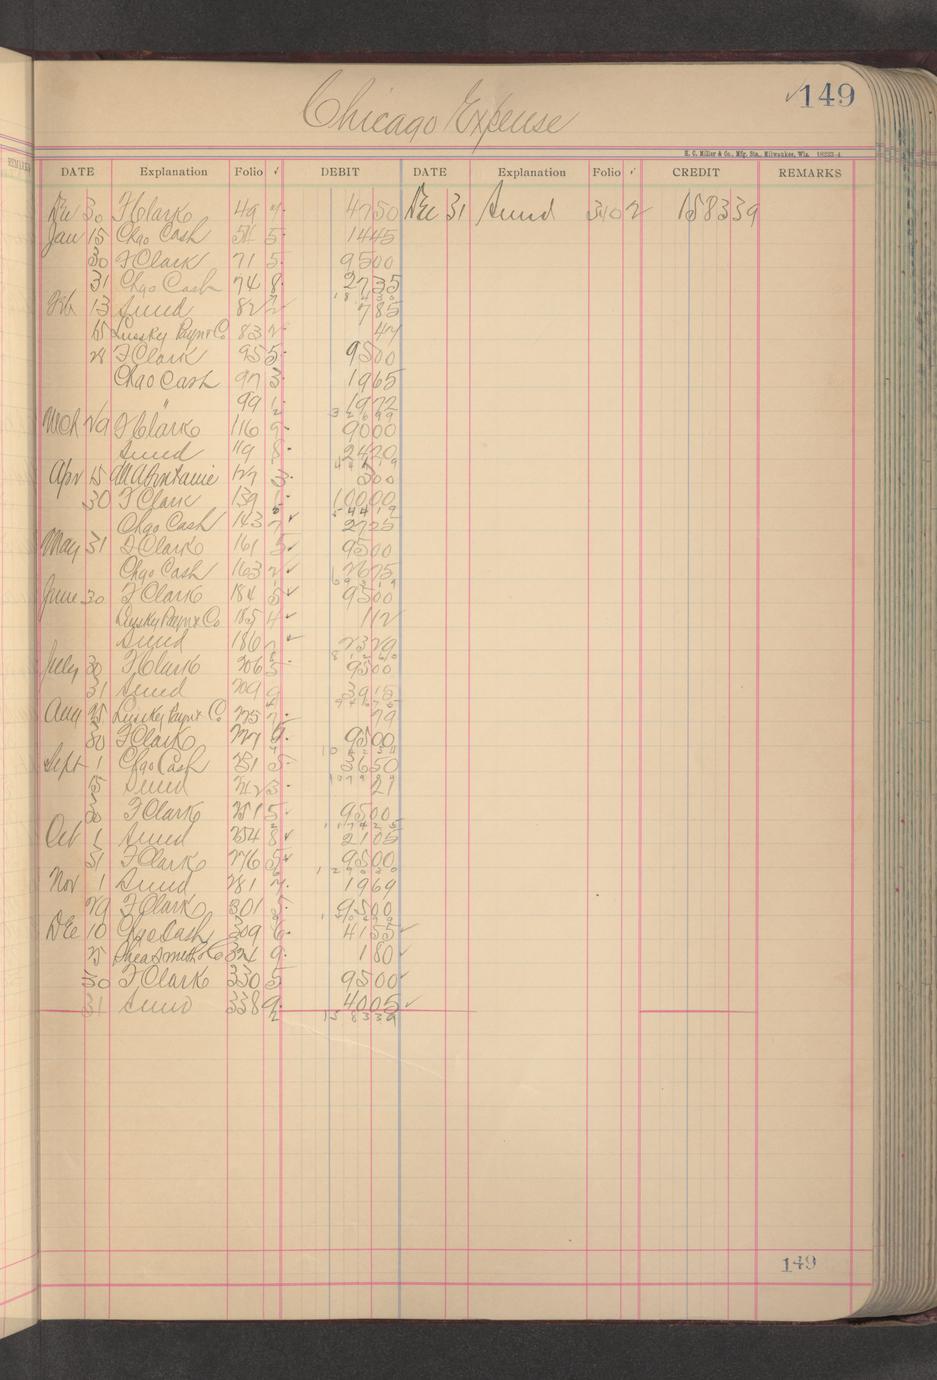 Chicago Expense
149
H. C. Miller & Co., Mfg. Sta., Milwaukee, Wis. 18223-4
DATE Explanation Folio ✓ DEBIT DATE Explanation Folio ✓ CREDIT REMARKS
Dec 30 F Clark 49 4750 Dec 31 Sund 340 2 158339
Jan 15 Chgo Cash 51 5 1445
30 F Clark 71 5 9500
31 Chgo Cash 74 8 2735
Feb 13 Sund 82 785
15 Lusky Payn & Co 83 2 47
28 F Clark 95 5 9500
Chgo Cash 97 3 1965
" 99 1 1972
Mch 29 F Clark 116 9 9000
Sund 119 8 2420
Apr 15 127 3 300
30 F Clark 139 1 10000
544 19
Chgo Cash 143 7 2725
May 31 F Clark 161 5 9500
Chgo Cash 163 2 2675
June 30 F Clark 184 5 9500
Lusky Payn & Co 185 4 112
Sund 186 2 2329
July 30 F Clark 206 5 9500
31 Sund 209 9 3915
Aug 25 Lusky Payn & Co 225 7 79
30 F Clark 227 9500
Sept 1 Chgo Cash 231 5 3650
15 Sund 242 3 21
30 F Clark 251 5 9500
Oct 1 Sund 254 8 2105
31 F Clark 276 5 9500
Nov 1 Sund 281 7 1969
29 F Clark 301 5 9500
Dec 10 Chgo Cash 309 6 4155
25 Shea Smith & Co 324 9 180
30 F Clark 330 5 9500
31 Sund 338 9 4005
15 8339
149